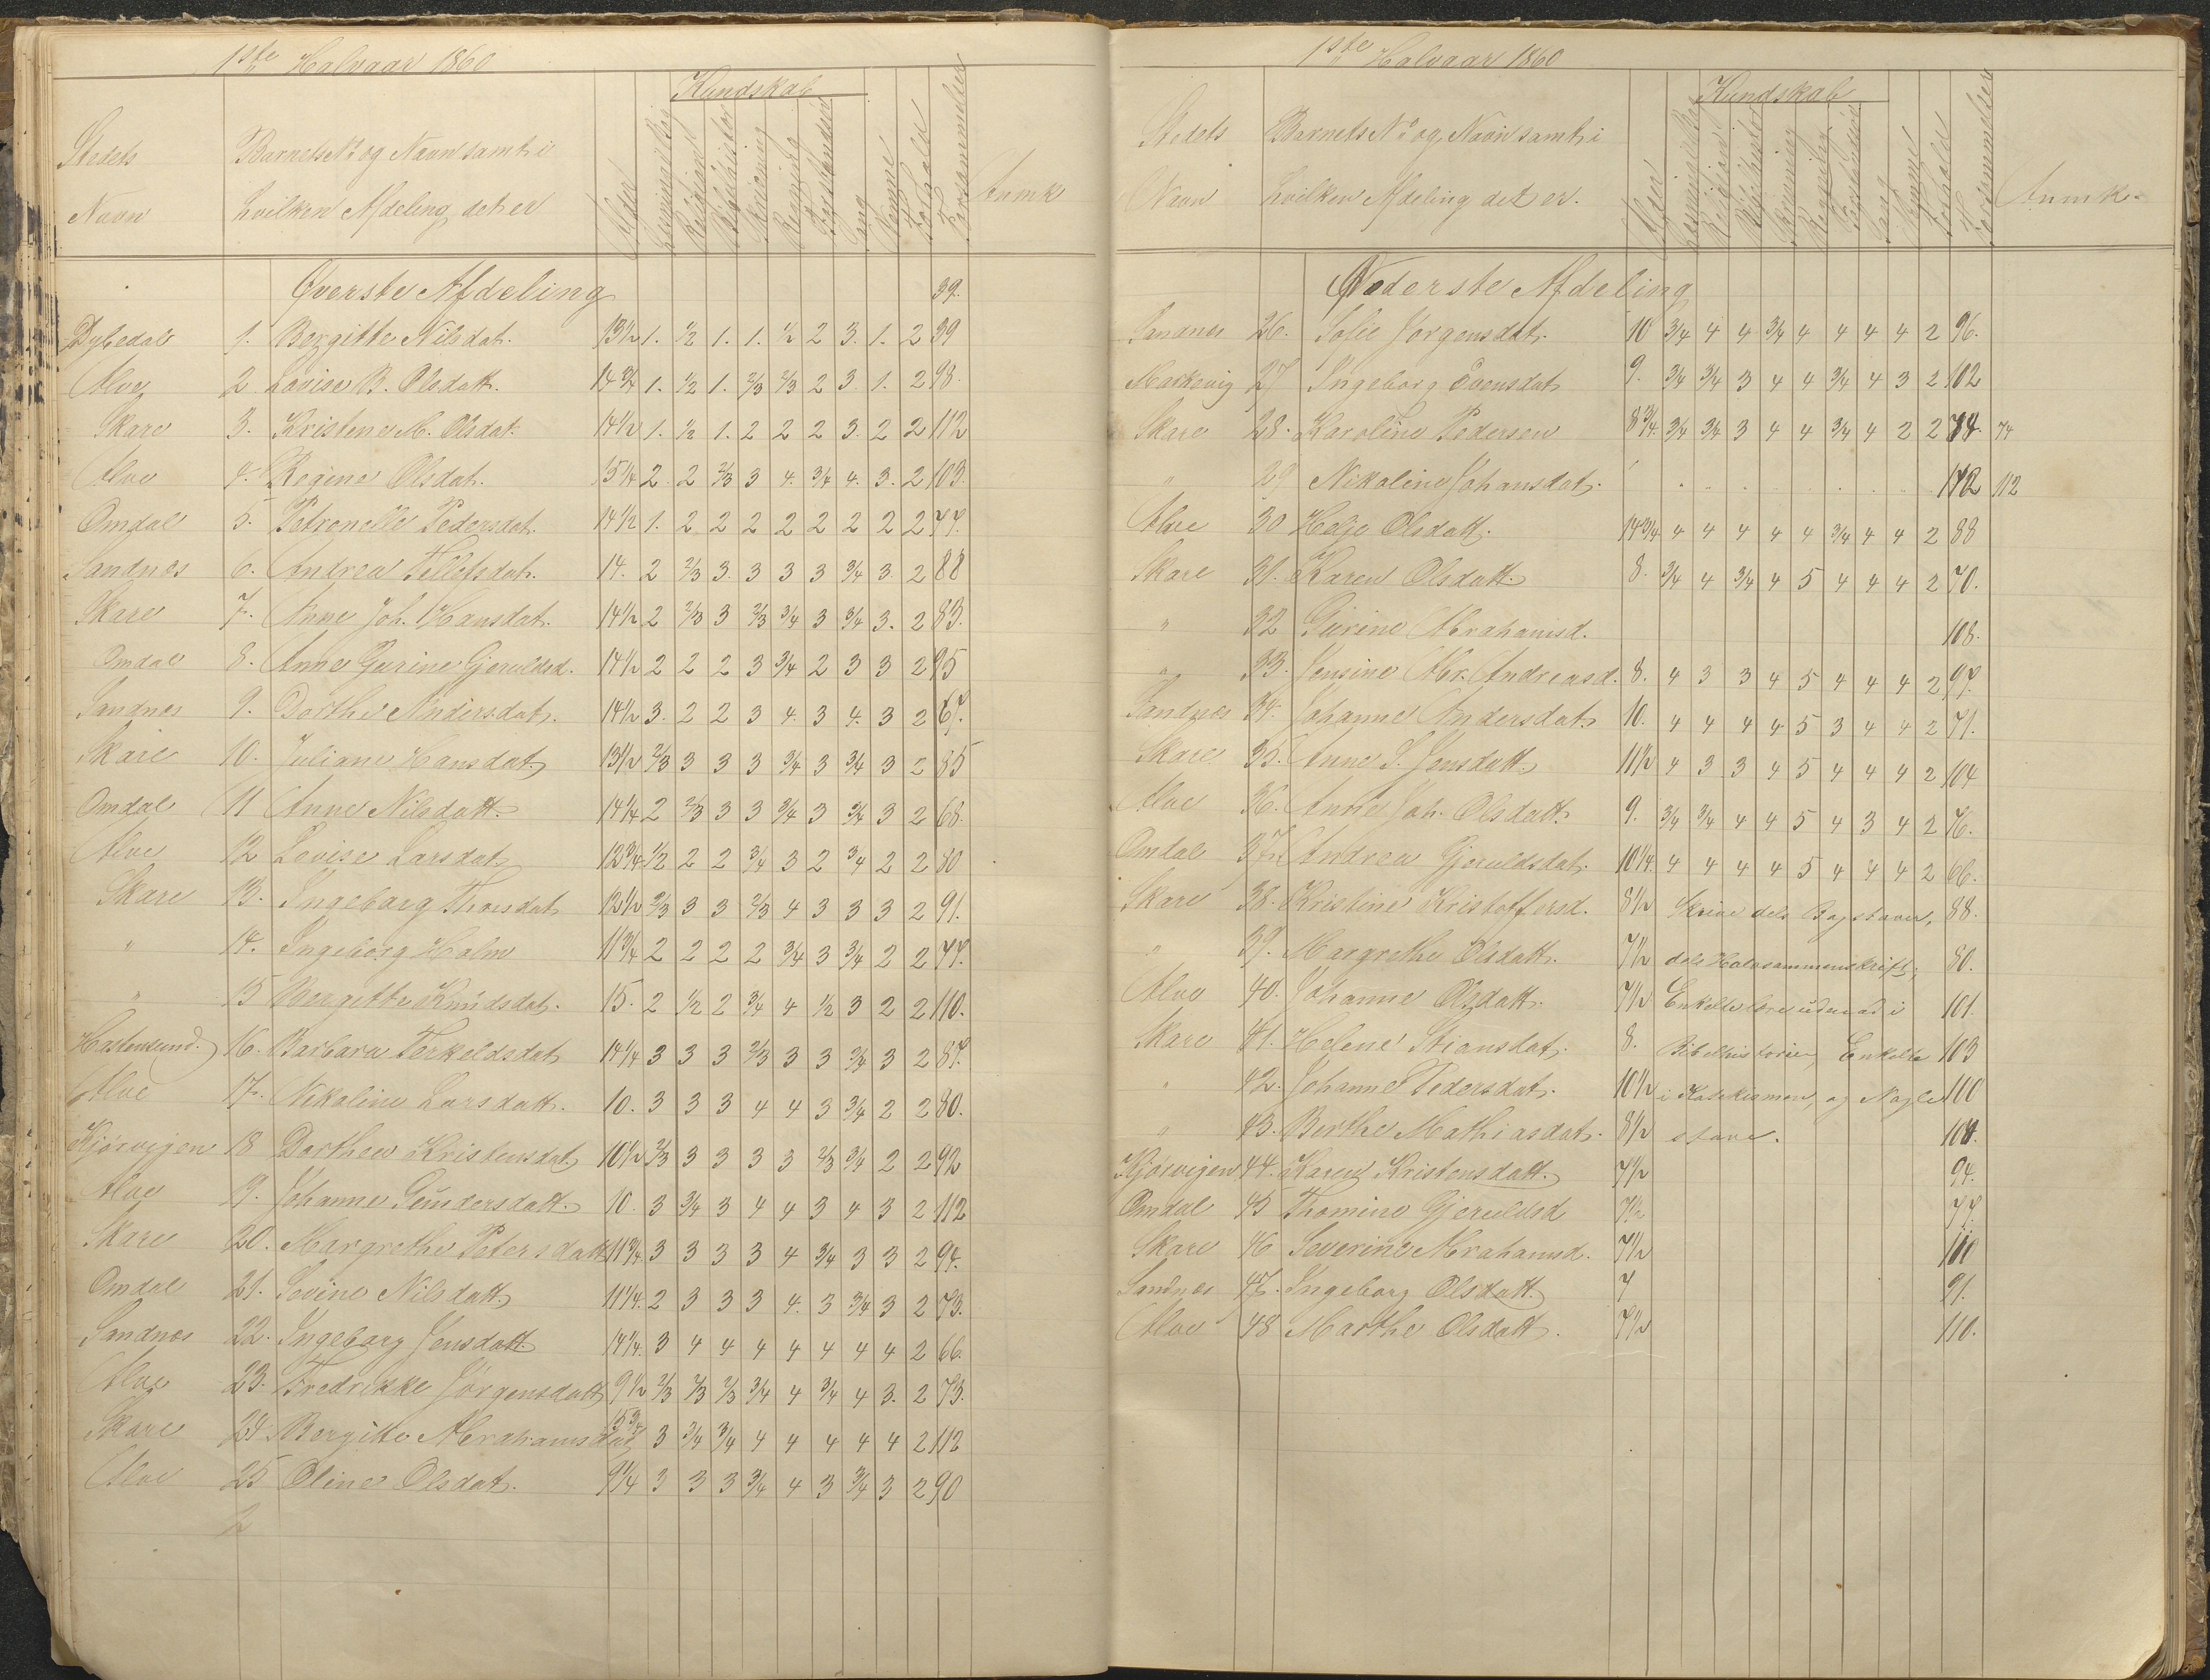 1ste Halvaar 1860
Kundskab
Stedets Navn
Barnets No og Navn samt i
hvilken Afdeling det er
Alder Religion Bibelhistor Skrivning Regning Sang Nemme Forhold Forsømmelser Anmk
Øverste Afdeling 39.
Dybedal 1. Bergitte Nilsdat. 13½ 1. ½ 1. 1. ½ 2 3. 1. 2 39
Alve 2. Lovise B. Olsdatt. 14¾ 1. ½ 1. 2/3 2/3 2 3 1. 2 98.
Skare 3. Kristene M. Olsdat. 14½ 1. ½ 1. 2 2 2 3. 2 2 112
Alve 4. Regine Olsdat. 15¼ 2. 2 2/3 3 4. ¾ 4. 3. 2 103.
Omdal 5. Petronelle Pedersdat. 14½ 1. 2 2 2 2 2 2 2 2 77.
Sandnes 6. Andrea Tellefsdat. 14. 2 2/3 3. 3 3 3 ¾ 3. 2 88
Skare 7. Anne Joh. Hansdat. 14½ 2 2/3 3 2/3 ¾ 3 ¾ 3. 2 83.
Omdal 8. Anne Gurine Gjeruldsd. 14½ 2 2 2 3 ¾ 2 3 3 2 95
Sandnes 9. Dorthe Andersdat. 14½ 3. 2 2 3 4. 3 4. 3 2 67.
Skare 10. Juliane Hansdat. 13½ 2/3 3 3 3 ¾ 3 ¾ 3 2 85
Omdal 11 Anne Nilsdatt. 14¼ 2 2/3 3 3 ¾ 3 ¾ 3 2 68.
Alve 12 Lovise Larsdat 12¾ ½ 2 2 ¾ 3 2 ¾ 2 2 80
Skare 13. Ingeborg Thorsdat 12½ 2/3 3 3 2/3 4 3 3 3 2 91.
" 14. Ingeborg Holm 11¾ 2 2 2 2 ¾ 3 ¾ 2 2 77.
" 15 Bergitte Knudsdat. 15. 2 ½ 2 ¾ 4 ½ 3 2 2 110.
Hastensund. 16. Barbara Terkeldsdat 14¼ 3 3 3 2/3 3 3 ¾ 3 2 87.
Alve 17. Nikoline Larsdatt. 10. 3 3 3 4 4 3 ¾ 2 2 80.
Kjørvigen 18 Dorthea Kristensdat. 10½ 2/3 3 3 3 3 2/3 ¾ 2 2 92
Alve 19. Johanne Gundersdatt. 10. 3 ¾ 3 4 4 3 4 3 2 112
Skare 20. Margrethe Petersdatt 11¾ 3 3 3 3 4 ¾ 3 3 2 94.
Omdal 21. Sevine Nilsdatt. 11¼. 2 3 3 3 4. 3 ¾ 3 2 73.
Sandnes 22. Ingeborg Jensdatt. 14¼. 3 4 4 4 4 4 4 4 2 66.
Alve 23. Fredrikke Jørgensdatt 9½ 2/3 2/3 2/3 ¾ 4 ¾ 4 3. 2 73.
Skare 24. Bergitte Abrahamsdat 3 ¾ ¾ 4 4 4 4 4 2 112
Alve 25 Oline Olsdat. 9¼ 3 3 3 ¾ 4 3 ¾ 3 2 90
1ste Halvaar 1860
Kundskab
Stedets Navn
Barnets No og Navn samt i
hvilken Afdeling det er.
Alder Religion Bibelhistor Skrivning Regning Sang Nemme Forhold Forsømmelser Anmk.
Nederste Afdeling
Sandnes 26. Sofie Jørgensdat. 10 ¾ 4 4 ¾ 4 4 4 4 2 96.
Markevig 27 Ingeborg Evensdat 9. ¾ ¾ 3 4 4 ¾ 4 3 2 102
Skare 28. Karoline Pedersen 8¾. ¾ ¾ 3 4 4 ¾ 4 2 2 74. 74
" 29 Nikoline Johansdat. 112 112
Alve 30 Helje Olsdatt. 14¾ 4 4 4 4 4 ¾ 4 4 2 88
Skare 31. Karen Olsdatt. 8. ¾ 4 ¾ 4 5 4 4 4 2 70.
" 32 Gurine Abrahamsd. 108.
" 33. Jensine Abr. Andreasd. 8. 4 3 3 4 5 4 4 4 2 97.
Sandnes 34. Johanne Andersdat. 10. 4 4 4 4 5 3 4 4 2 71.
Skare 35. Anne S. Jensdatt. 11½ 4 3 3 4 5 4 4 4 2 104
Alve 36. Anne Joh. Olsdatt. 9. ¾ ¾ 4 4 5 4 3 4 2 76.
Omdal 37. Andrea Gjeruldsdat. 10¼. 4 4 4 4 5 4 4 4 2 66.
Skare 38. Kristine Kristoffersd. 8½ Skrive dels Bogstaver, 88.
" 39. Margrethe Olsdatt. 7½ dels Halvsammenskrift; 80.
Alve 40. Johanne Olsdatt. 7½ Enkelte lære udenad i 101.
Skare 41. Helene Stiansdat. 8. Bibelhistorien, Enkelte 103
" 42. Johanne Pedersdat. 10½ i Katekismen, og Nogle 100
" 43. Berthe Mathiasdat. 8½ stave. 104.
Kjørvigen 44. Karen Kristensdatt. 7½ 94.
Omdal 45 Thomine Gjeruldsd 7½ 77.
Skare 46 Severine Abrahamsd. 7½ 100
Sandnes 47. Ingeborg Olsdatt. 7 91.
Alve 48 Marthe Olsdatt. 7½ 110.